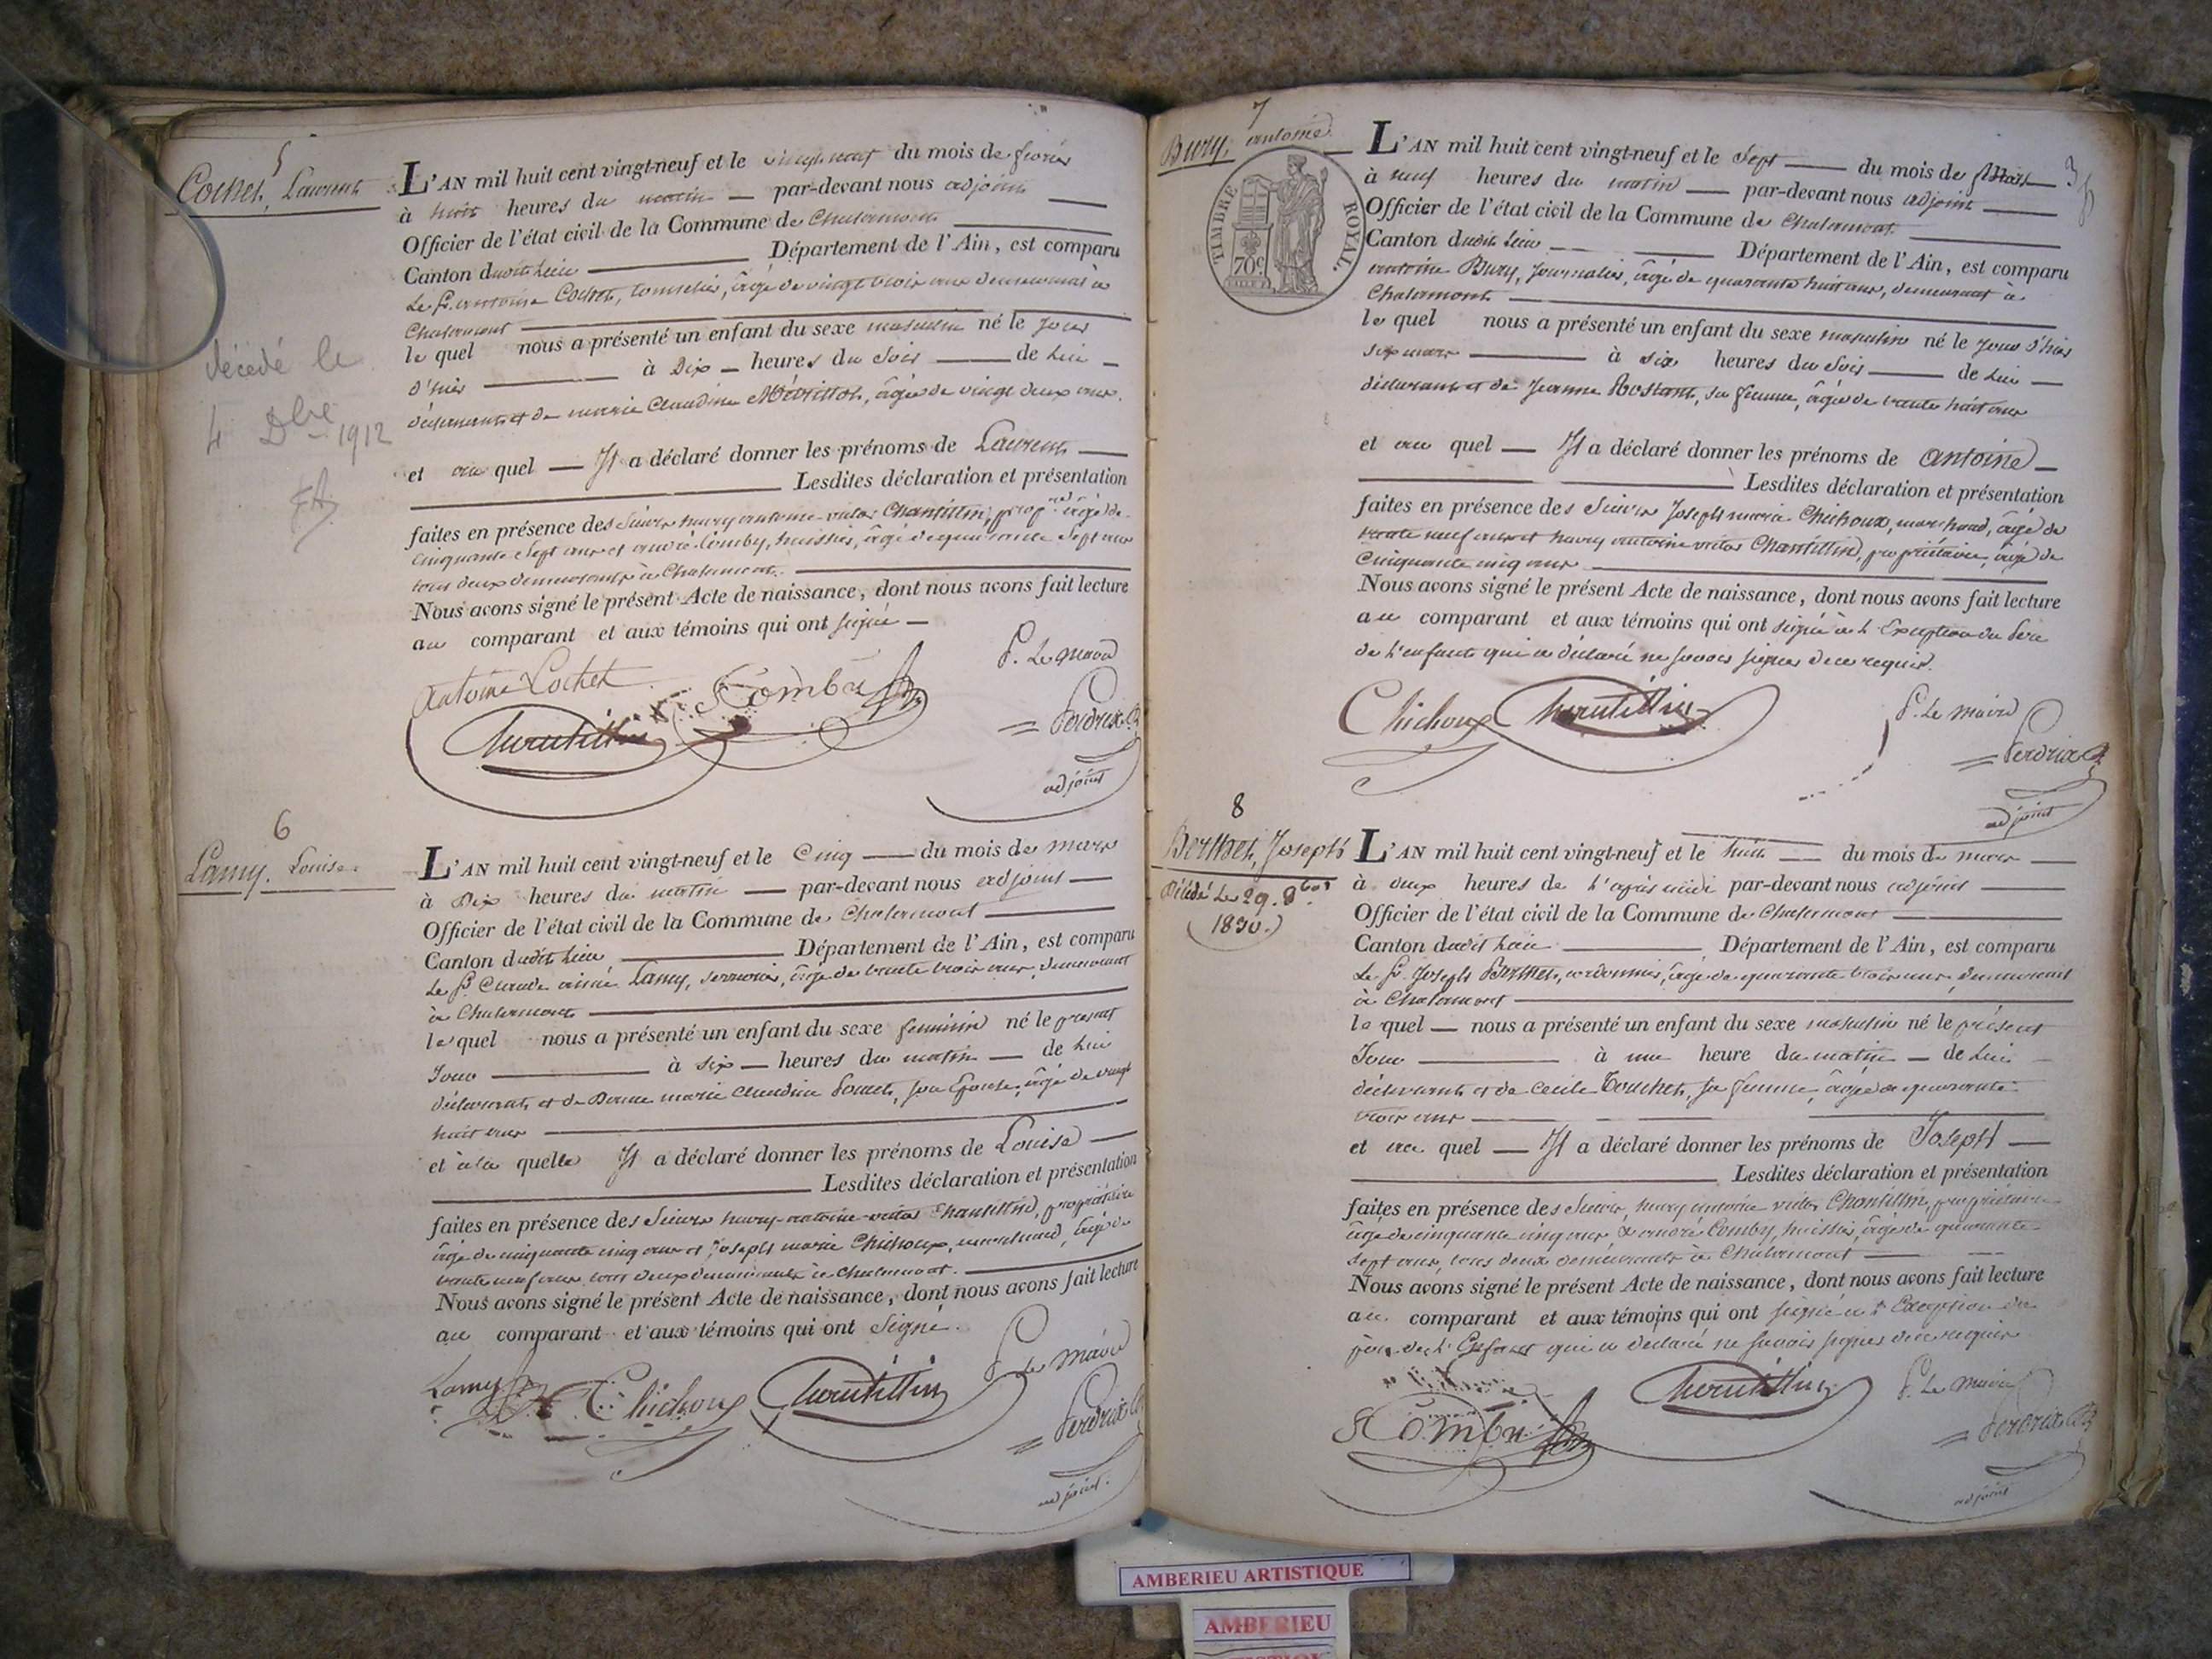 5
Cochet, Laurent
décédé le
4 Dbre 1912
L'AN mil huit cent vingt-neuf et le vingt neuf du mois de fevrier
à huit heures du matin — par-devant nous adjoint —
Officier de l'état civil de la Commune de Chalamont
Canton dudit Lieu Département de l'Ain, est comparu
Le Sr. antoine Cochet, tonnelier, âgé de vingt trois ans demeurant à
Chalamont
le quel nous a présenté un enfant du sexe masculin né le jour
d'hier à Dix — heures du Soir — de Lui —
déclarant et de marie Claudine, âgée de vingt deux ans.
et au quel — Il a déclaré donner les prénoms de Laurent —
Lesdites déclaration et présentation
faites en présence des Sieurs henry antoine victor Chantillin, âgé de
Cinquante Sept ans et andré Comby, huissier, âgé de quarante Sept ans
tous deux demeurants à Chalamont.
Nous avons signé le présent Acte de naissance, dont nous avons fait lecture
au comparant et aux témoins qui ont signé —
Antoine Cochet Comby P. Le maire
Chantillin Perdrix
adjoint
6
Lamy. Louise.
L'AN mil huit cent vingt-neuf et le Cinq — du mois de mars
à Dix heures du matin — par-devant nous adjoint —
Officier de l'état civil de la Commune de Chalamont
Canton dudit Lieu Département de l'Ain, est comparu
Le Sr. Claude aimé Lamy, serrurier, âgé de trente trois ans, demeurant
à Chalamont
le quel nous a présenté un enfant du sexe feminin né le présent
Jour à six — heures du matin — de Lui
déclarant, et de Dame marie Claudine, son Epouse, âgé de vingt
huit ans
et à la quelle Il a déclaré donner les prénoms de Louise —
Lesdites déclaration et présentation
faites en présence des Sieurs henry-antoine-victor Chantillin, propriétaire
âgé de cinquante cinq ans et Joseph marie Chichoux, marchand, âgé de
trente neuf ans, tous deux demeurants à Chalamont.
Nous avons signé le présent Acte de naissance, dont nous avons fait lecture
au comparant et aux témoins qui ont Signé.
Lamy Chichoux Chantillin P. Le maire
Perdrix
adjoint.
7
Bury, antoine
TIMBRE ROYAL
70c
L'AN mil huit cent vingt-neuf et le Sept — du mois de Mars —
à neuf heures du matin — par-devant nous adjoint —
Officier de l'état civil de la Commune de Chalamont
Canton dudit Lieu Département de l'Ain, est comparu
antoine Bury, Journalier, âgé de quarante huit ans, demeurant à
Chalamont
le quel nous a présenté un enfant du sexe masculin né le jour d'hier
six mars à six heures du Soir — de Lui —
déclarant et de Jeanne Rostant, sa femme, âgée de trente huit ans
et au quel — Il a déclaré donner les prénoms de antoine —
Lesdites déclaration et présentation
faites en présence des Sieurs Joseph marie Chichoux, marchand, âgé de
trente neuf ans et henry antoine victor Chantillin, propriétaire, âgé de
Cinquante cinq ans
Nous avons signé le présent Acte de naissance, dont nous avons fait lecture
au comparant et aux témoins qui ont signé à l'Exception du Père
de l'enfant qui a déclaré ne savoir signer de ce requis.
Chichoux Chantillin P. Le maire
Perdrix
adjoint
8
Berthet, Joseph
Décédé Le 29. 8bre
1830.
L'AN mil huit cent vingt-neuf et le huit — du mois de mars —
à deux heures de l'après midi par-devant nous adjoint —
Officier de l'état civil de la Commune de Chalamont
Canton dudit Lieu Département de l'Ain, est comparu
Le Sr. Joseph Berthet, cordonnier, âgé de quarante trois ans, demeurant
à Chalamont
le quel — nous a présenté un enfant du sexe masculin né le présent
Jour à une heure du matin — de Lui
déclarant et de Cécile Touchet, sa femme, âgée de quarante
trois ans
et au quel — Il a déclaré donner les prénoms de Joseph —
Lesdites déclaration et présentation
faites en présence des Sieurs, henry antoine victor Chantillin, propriétaire
âgé de cinquante cinq ans, & andré Comby, huissier, âgé de quarante
sept ans, tous deux demeurants à Chalamont
Nous avons signé le présent Acte de naissance, dont nous avons fait lecture
au comparant et aux témoins qui ont signé à l'Exception du
père de l'Enfant qui a déclaré ne savoir signer de ce requis
Comby Chantillin P. Le maire
Perdrix
adjoint
AMBERIEU ARTISTIQUE
AMBERIEU